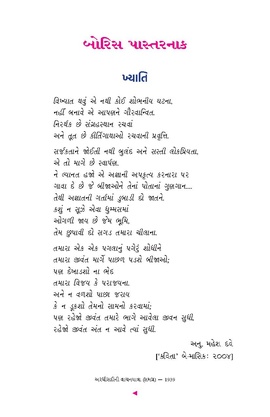 બોરિસ પાસ્તરનાક
ખ્યાતિ
વિખ્યાત થવું એ નથી કોઈ શોભનીય ઘટના,
નહીં બનાવે એ આપણને ગૌરવાન્વિત.
નિરર્થક છે સંગ્રહસ્થાન રચવાં
અને તૂત છે કીર્તિગાથાઓ રચવાની પ્રવૃત્તિ.
સર્જકતાને જોઈતી નથી બુલંદ અને સસ્તી લોકપ્રિયતા,
એ તો માગે છે સ્વાર્પણ.
ને લ્યાનત હજો એ અજ્ઞાની અપકૃત્ય કરનારા પર
ગાવા દે છે જે બીજાઓને તેનાં પોતાનાં ગુણગાન...
તેથી અજ્ઞાતની ગર્તામાં ડુબાડી દો જાતને.
કશું ન સૂઝે એવા ધુમ્મસમાં
ઓગળી જાય છે જેમ ભૂમિ,
તેમ છુપાવી દો સગડ તમારા ચીલાના.
તમારા એક એક પગલાનું પગેરું શોધીને
તમારા જીવંત માર્ગે પાછળ પડશે બીજાઓ;
પણ દેખાડશો ના ભેદ
તમારા વિજય કે પરાજયના.
અને ન વળશો પાછા જરાય
કે ન ડૂકશો તેમનો સામનો કરવામાં;
પણ રહેજો જીવંત તમારે ભાગે આવેલા જીવન સુધી.
રહેજો જીવંત અંત ન આવે ત્યાં સુધી.
અનુ. મહેશ દવે
['કવિતા' બે-માસિક: ૨૦૦૪]